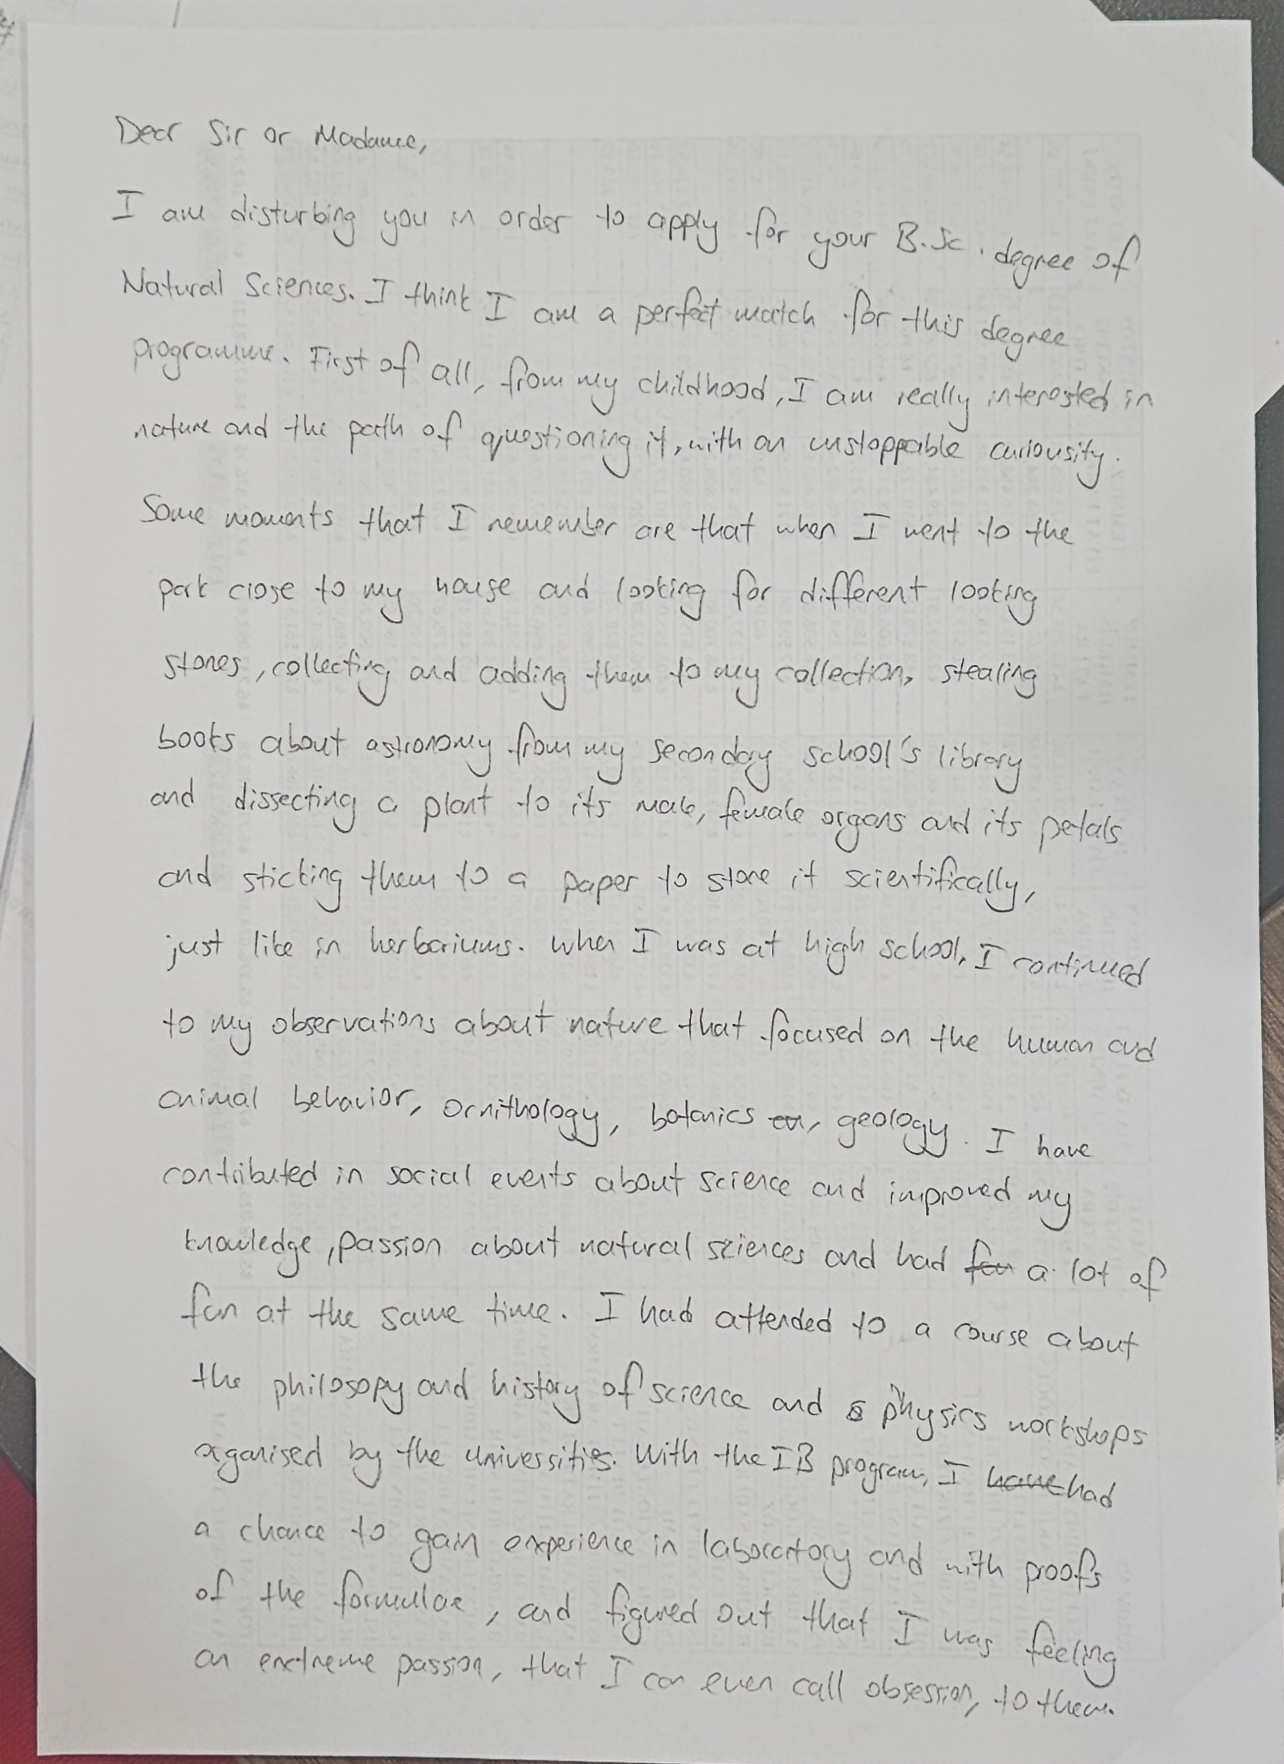 Dear Sir or Madame,
I am disturbing you in order to apply for your B.Sc. degree of
Natural Sciences. I think I am a perfect match for this degree
programme. First of all, from my childhood, I am really interested in
nature and the path of questioning it, with an unstoppable curiousity.
Some moments that I remember are that when I went to the
park close to my house and looking for different looking
stones, collecting and adding them to my collection, stealing
books about astronomy from my secondary school's library
and dissecting a plant to its male, female organs and its petals
and sticking them to a paper to store it scientifically,
just like in herbariums. When I was at high school, I continued
to my observations about nature that focused on the human and
animal behavior, ornithology, botanics, geology. I have
contributed in social events about science and improved my
knowledge, passion about natural sciences and had a lot of
fun at the same time. I had attended to a course about
the philosopy and history of science and physics workshops
oganised by the universities. With the IB program, I had
a chance to gain experience in laboratory and with proofs
of the formulae, and figured out that I was feeling
an exctreme passion, that I can even call obsession, to them.